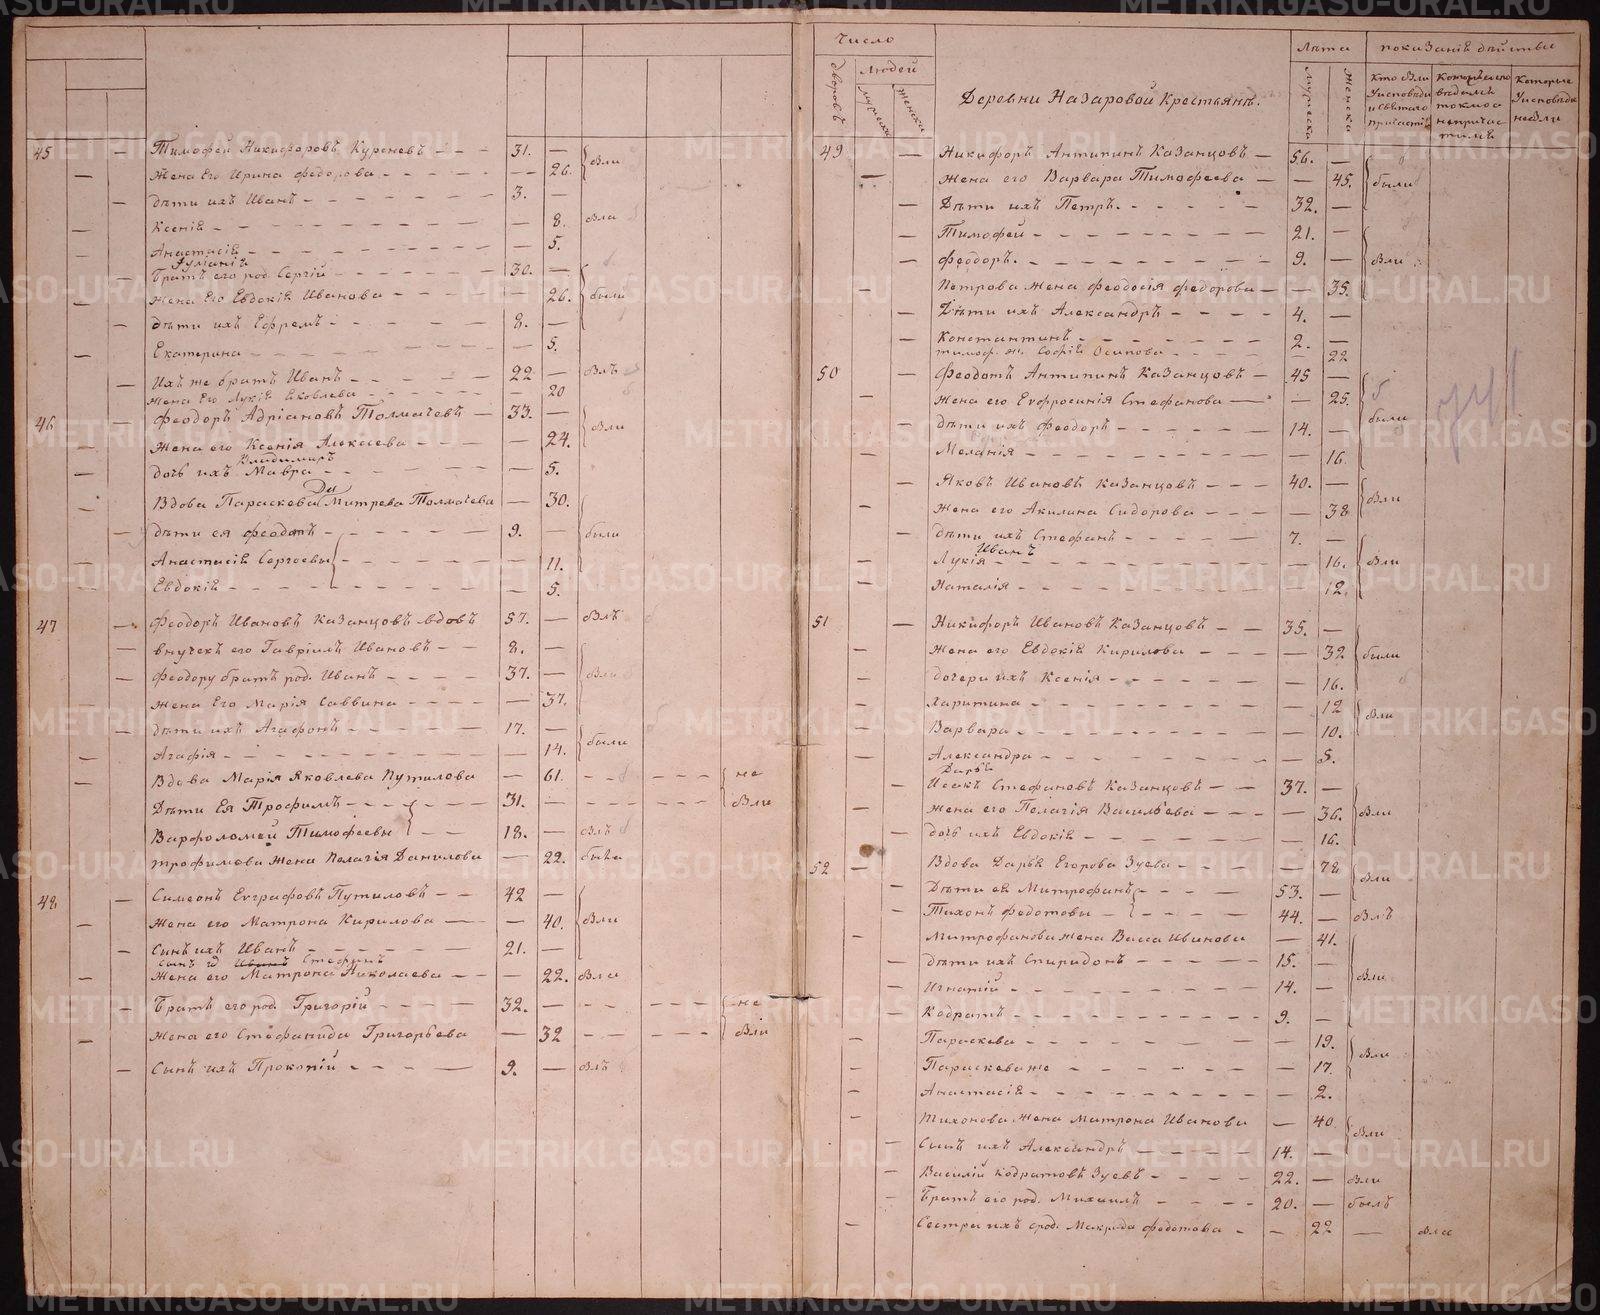 45 — Тимофей Никифоровъ Курсневъ — — — 31. —
— Жена Его Ирина Федорова — — 26. Были
— дѣти ихъ Иванъ — — 3. —
— Ксенія — — 8. Была
— Анастасія — — 5.
— Братъ его род. Сергій — — 30. —
— Жена Его Евдокія Иванова — — 26. были
— дѣти ихъ Ефремъ — — 8. —
— Екатерина — — 5.
— Ихъ же братъ Иванъ — — 22 — былъ
Жена Его Лукія Яковлева — — 20
46 — Феодоръ Адріановъ Толмачевъ — 33. —
— Жена его Ксенія Алексеева — — 24. Были
Владимиръ
— дочь ихъ Мавра — — 5.
— Вдова Параскева Дмитрева Толмачева — 30.
— дѣти ея Феодотъ — — 9. — были
— Анастасія Сергѣевы — — 11.
— Евдокія — — 5.
47 — Феодоръ Ивановъ Казанцовъ вдовъ 57. — былъ
— внучекъ его Гавріилъ Ивановъ — — 8. —
— Феодору братъ род. Иванъ — — 37. — Были
— Жена Его Марія Саввина — — 37.
— дѣти ихъ Агафонъ — — 17. —
— Агафія — — 14. были
— Вдова Марія Яковлева Путилова — 61. — — не
Дѣти Ея Трофимъ — — 31. — — Были
Варфоломей Тимофеевы — — 18. — Былъ
Трофимова Жена Пелагія Данилова — 22. была
48 — Симеонъ Евграфовъ Путиловъ — — 42 —
— Жена его Матрона Кирилова — — 40. Были
— Сынъ ихъ Иванъ — — 21. —
Стефанъ
— Жена его Матрона Николаева — — 22. Была
— Братъ его род. Григорій — — 32. — — — не
— Жена его Стефанида Григорьева — 32 — — Были
— Сынъ ихъ Прокопій — — 9. — былъ
Число
дворовъ
Людей
мужеска
женска
Деревни Назаровой Крестьянъ.
Лѣта
мужеска
женска
показаніе дѣйства
Кто были у исповѣди и святаго причастія
Которые исповѣдались токмо а не причастились
Которые у исповѣди не были
49 — Никифоръ Антипинъ Казанцовъ — 56. —
— Жена его Варвара Тимофеева — — 45. были
— Дѣти ихъ Петръ — — 32. —
— Тимофей — — 21. —
— Феодоръ — — 9. — Были
— Петрова жена Феодосія Федорова — — 35.
— Дѣти ихъ Александръ — — 4. —
— Константинъ — — 2. —
Тимоф. ж. Софія Осипова — — 22
50 — Феодотъ Антипинъ Казанцовъ — 45 —
— Жена его Евфросинія Стефанова — 25. были
— дѣти ихъ Феодоръ — — 14. —
— Меланія — — 16.
— Яковъ Ивановъ Казанцовъ — — 40. — Были
— Жена его Акилина Сидорова — — 38
— дѣти ихъ Стефанъ — — 7. —
Иванъ
— Лукія — — 16. Были
— Наталія — — 12.
51 — Никифоръ Ивановъ Казанцовъ — — 35. —
— Жена его Евдокія Кирилова — — 32 были
— дочери ихъ Ксенія — — 16.
— Харитина — — 12 Были
— Варвара — — 10.
— Александра — — 5.
Дарья
— Исакъ Стефановъ Казанцовъ — — 37. —
— Жена его Пелагія Васильева — — 36. Были
— дочь ихъ Евдокія — — 16.
52 — Вдова Дарья Егорова Зуева — — 78 Были
— Дѣти ея Митрофанъ — — 53. —
— Тихонъ Федотовы — — 44. — Былъ
— Митрофанова жена Васса Иванова — 41.
— Дѣти ихъ Спиридонъ — — 15. —
— Игнатій — — 14. — Были
— Кодратъ — — 9. —
— Параскева — — 19. Были
— Параскева же — — 17.
— Анастасія — — 2.
— Тихонова Жена Матрона Иванова — 40. Были
— Сынъ ихъ Александръ — — 14. —
— Василій Кодратовъ Зуевъ — — 22. — были
— Братъ его род. Михаилъ — — 20. — былъ
— Сестра ихъ род. Макрида Федотова — — 22 — Была
METRIKI.GASO-URAL.RU